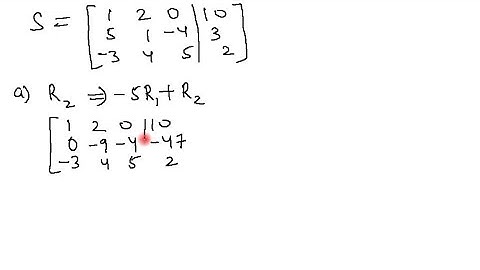 S = [ 1 2 0 | 10
5 1 -4 | 3
-3 4 5 | 2 ]
a) R₂ ⇒ -5R₁ + R₂
[ 1 2 0 | 10
0 -9 -4 | -47
-3 4 5 2